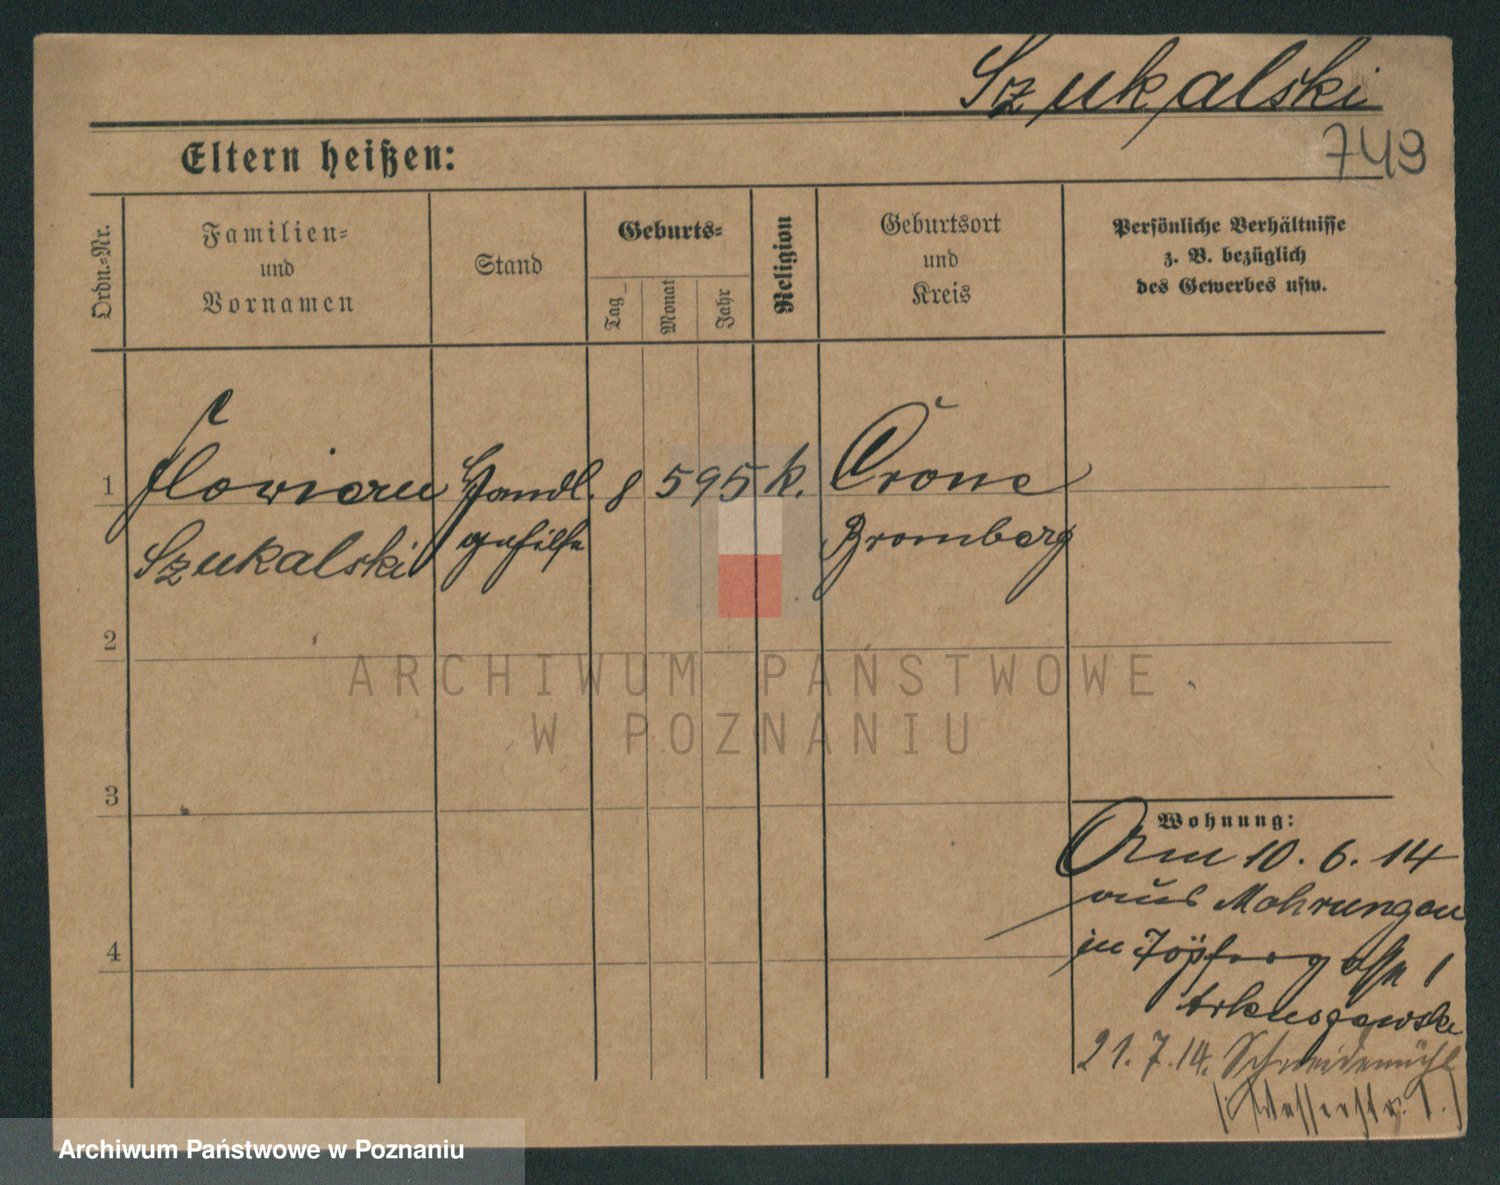 Szukalski
749
Eltern heißen:
Ordn.=Nr.
Familien=
und
Vornamen
Stand
Geburts=
Tag
Monat
Jahr
Religion
Geburtsort
und
Kreis
Persönliche Verhältnisse
z. B. bezüglich
des Gewerbes usw.
1
Florian
Szukalski
Handl.
gehilfe
8 5 95 k.
Crone
Bromberg
2
3
4
Wohnung:
Am 10. 6. 14
aus Mohrungen
in Töpfergasse 1
21. 7. 14. Schneidemühl
Wasserstr. 1.
ARCHIWUM PAŃSTWOWE
W POZNANIU
Archiwum Państwowe w Poznaniu